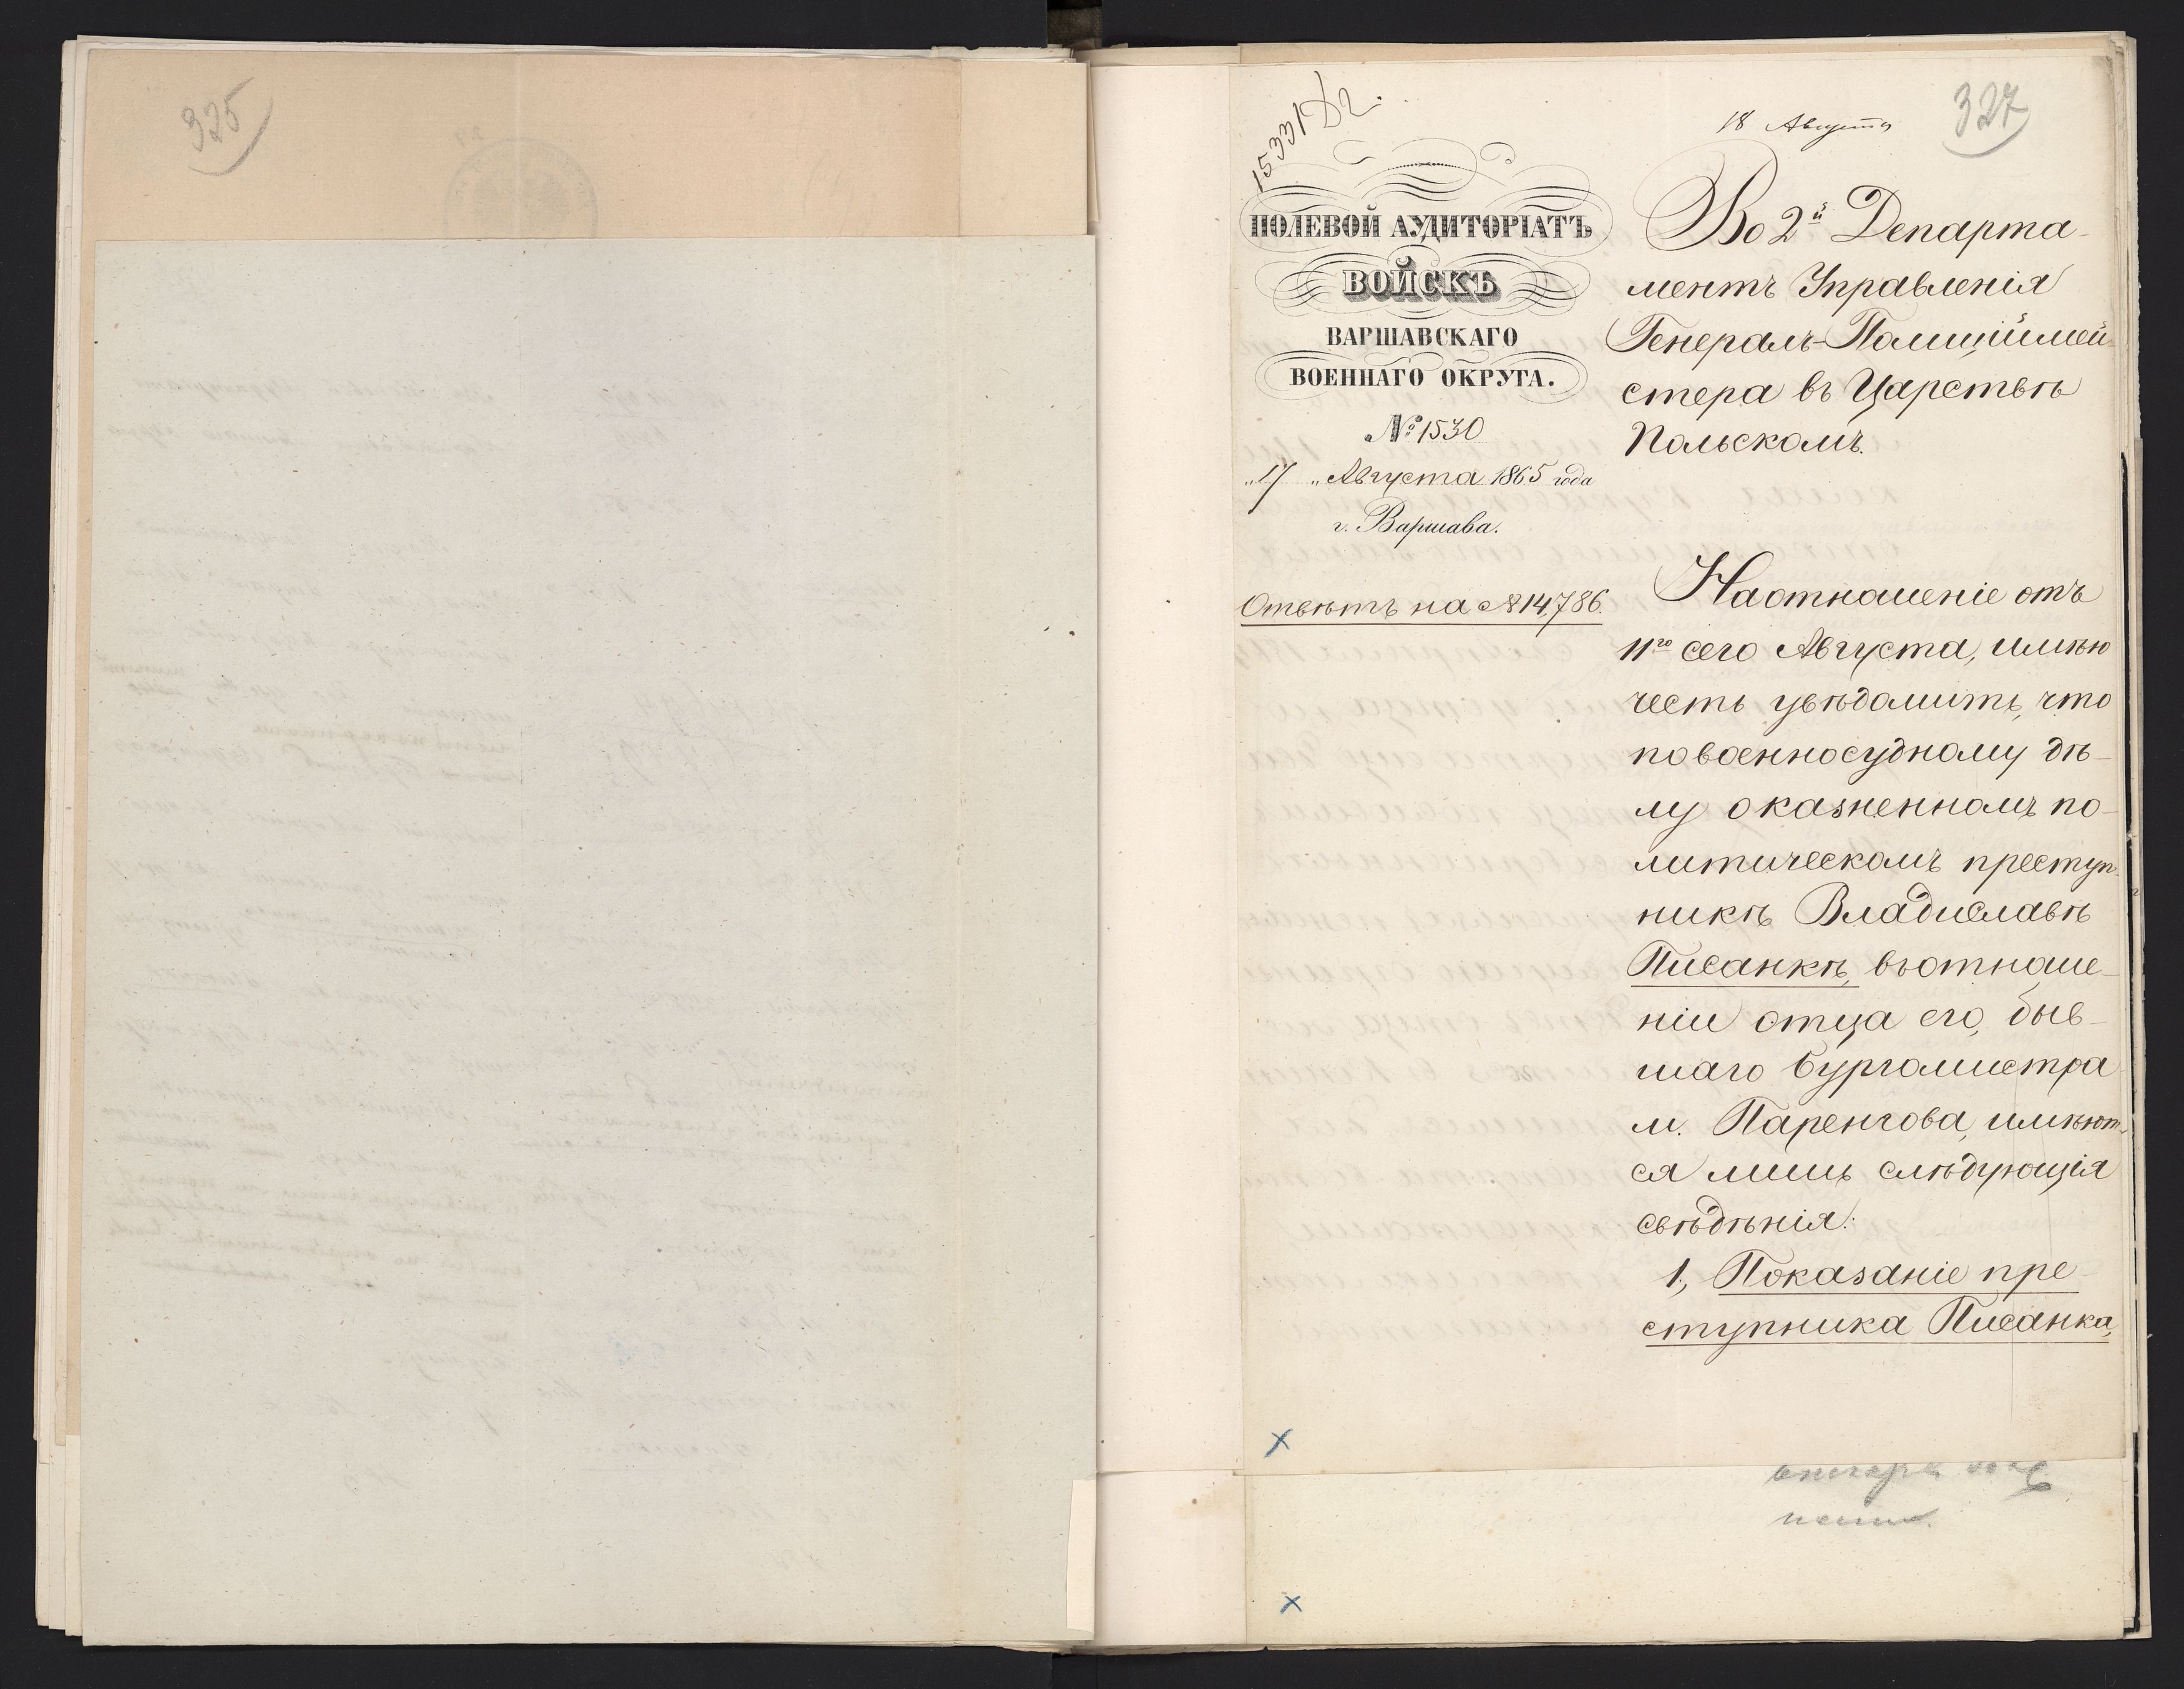 325
327
18 Августа
ПОЛЕВОЙ АУДИТОРІАТЪ
ВОЙСКЪ
ВАРШАВСКАГО
ВОЕННАГО ОКРУГА.
№ 1530
„17„ Августа 1865 года
г. Варшава.
Отвѣтъ на № 14,786.
Во 2й Департа-
ментъ Управленія
Генералъ-Полиціймей-
стера въ Царствѣ
Польскомъ.
На отношеніе отъ
11го сего Августа, имѣю
честь увѣдомить, что
по военносудному дѣ-
лу о казненномъ по-
литическомъ преступ-
никѣ Владиславѣ
Писанкѣ, въ отноше-
ніи отца его, быв-
шаго бургомистра
м. Паренгова, имѣют-
ся лишь слѣдующія
свѣдѣнія:
1., Показаніе пре-
ступника Писанка,